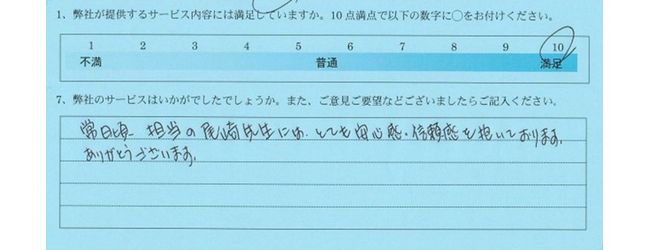 1、弊社が提供するサービス内容には満足していますか。10点満点で以下の数字に○をお付けください。
1 2 3 4 5 6 7 8 9 10
不満 普通 満足
7、弊社のサービスはいかがでしたでしょうか。また、ご意見ご要望などございましたらご記入ください。
常日頃、担当の尾崎先生には、とても安心感・信頼感を抱いております。
ありがとうございます。